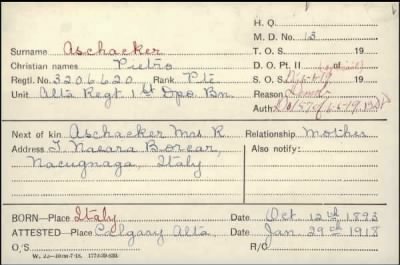 H. Q.
M. D. No. 13
Surname Aschacker
T. O. S. 19
Christian names Pietro
D. O. Pt. II 19
Regtl. No. 3206620 Rank Pte
S. O. S. 19
Unit Alta Regt 1st Dpo. Bn.
Reason
Auth.
Next of kin Aschacker Mrs R. Relationship Mother
Address Borcar, Also notify:
Nacugnaga, Italy
BORN—Place Italy Date Oct 12th 1893
ATTESTED—Place Calgary Alta Date Jan 29th 1918
O/S R/C